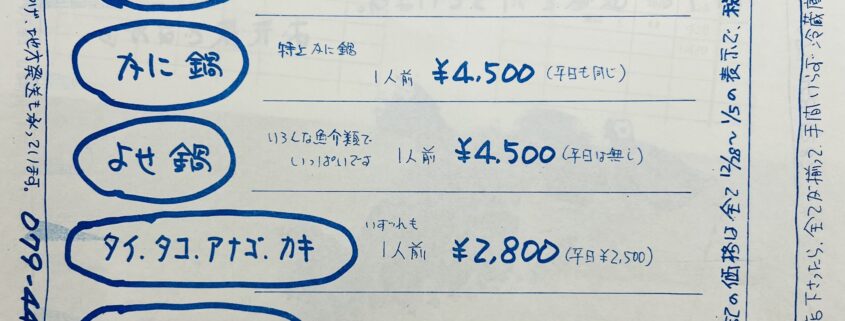 かに鍋
特上かに鍋
1人前 ¥4,500 (平日も同じ)
よせ鍋
いろんな魚介類で
いっぱいです
1人前 ¥4,500 (平日は無し)
タイ.タコ.アナゴ.カキ
いずれも
1人前 ¥2,800 (平日¥2,500)
記の価格は全て12/28〜1/5の表示で、税
下さったら、全てが揃って、手間いらず 冷蔵庫
地方発送も承っています。079-44